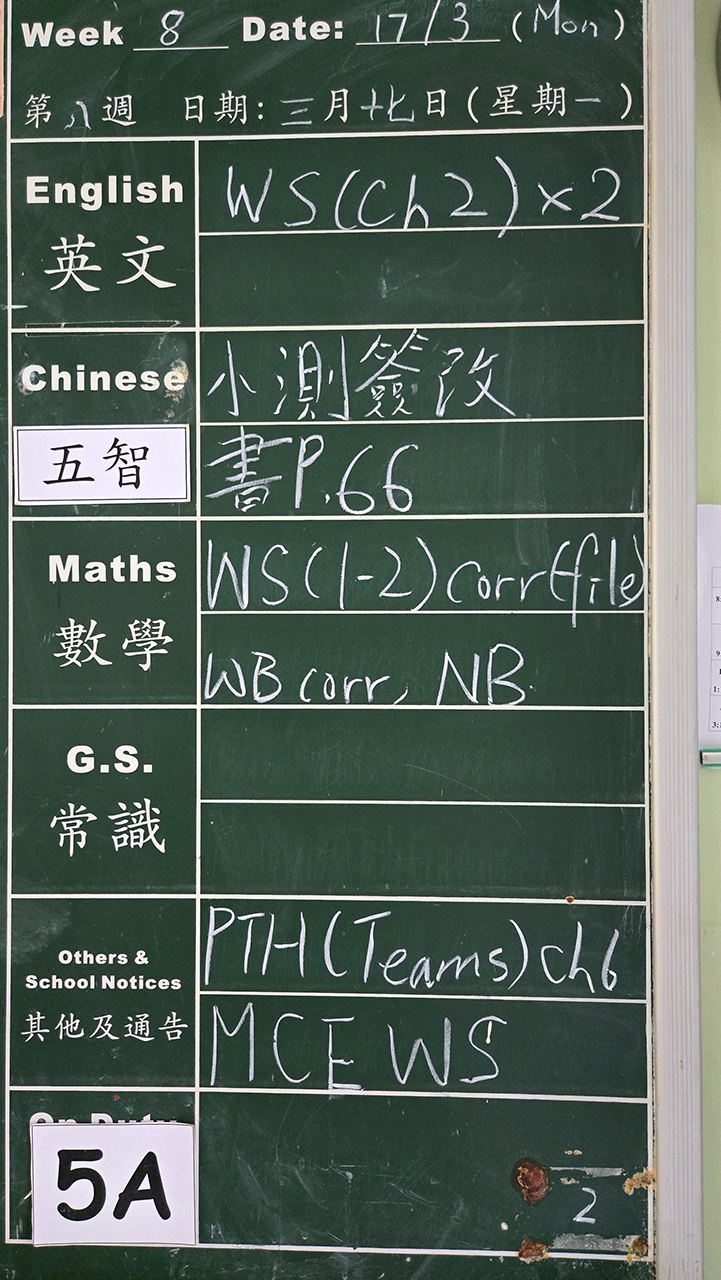 Week 8 Date: 17/3 (Mon)
第八週 日期:三月十七日(星期一)
English
英文
WS(Ch2)x2
Chinese
五智
小測簽改
書P.66
Maths
數學
WS(1-2)corr(file)
WB corr, NB
G.S.
常識
Others &
School Notices
其他及通告
PTH(Teams)ch6
MCE WS
On Duty
5A
2